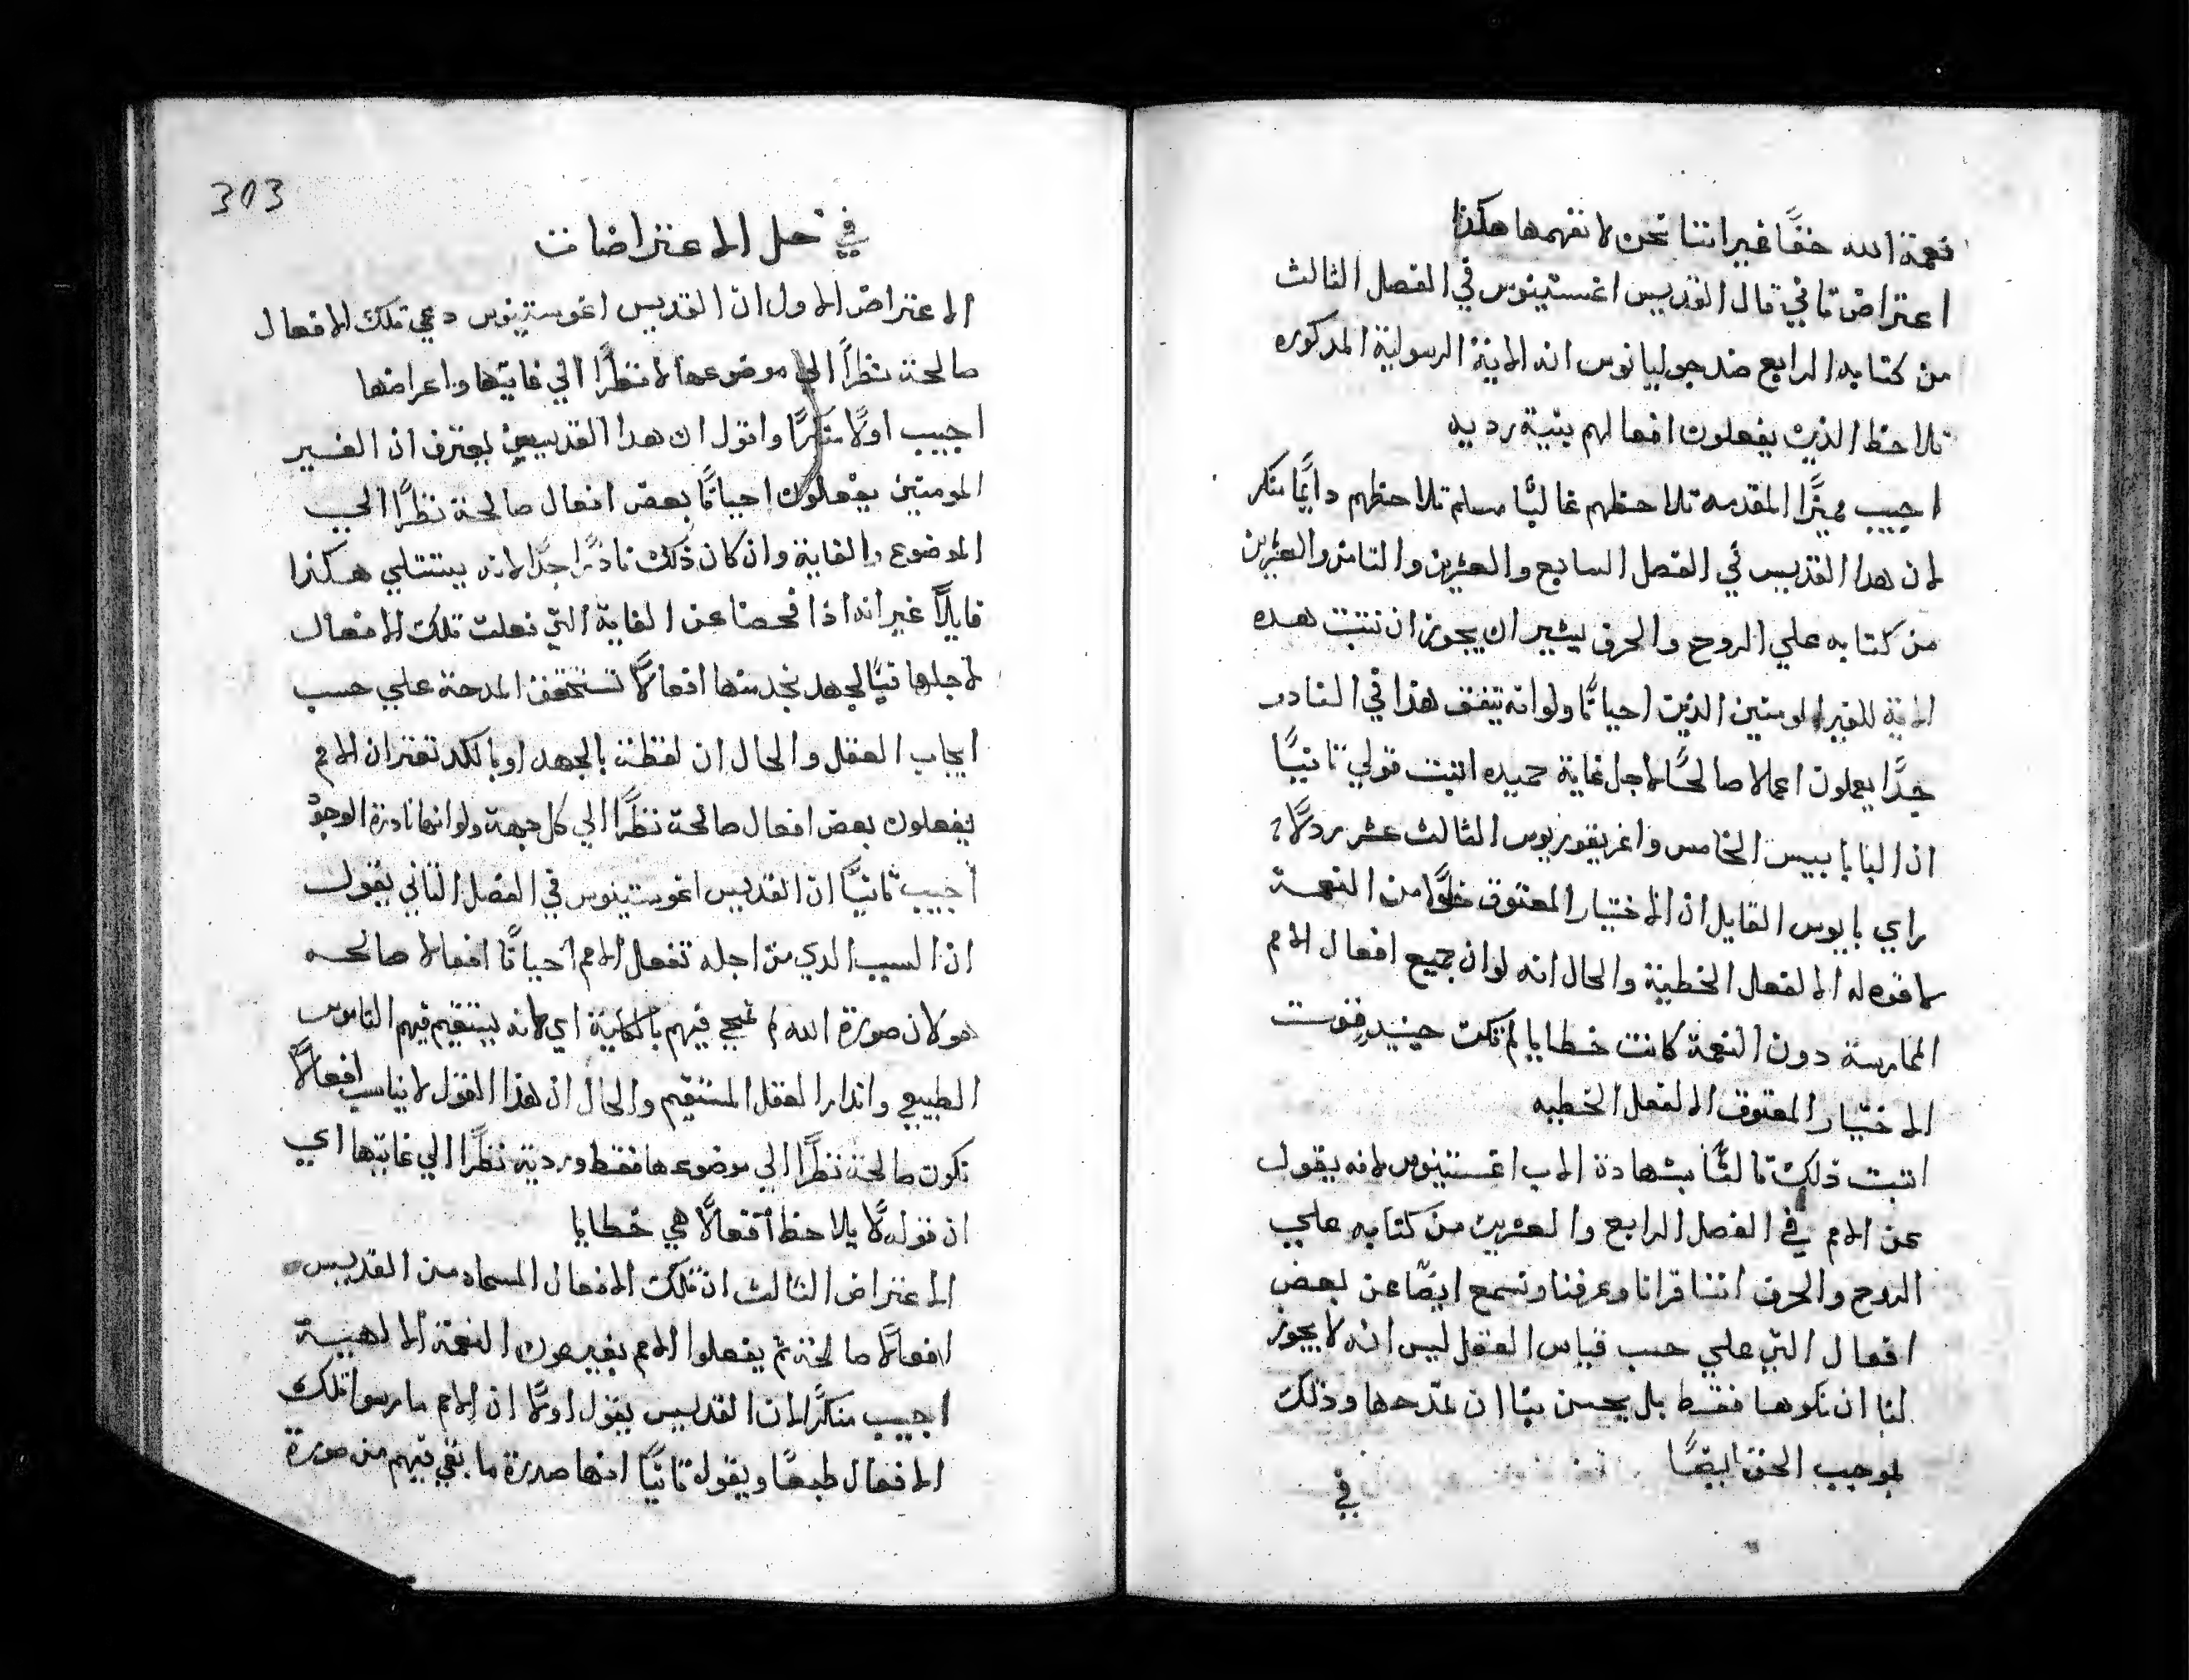 نعمة الله حقًا غير اننا نحن لا نفهمها هكذا
اعتراض تاني قال القديس اغستينوس في الفصل الثالث
من كتابه الرابع ضد جوليانوس انه الاية الرسولية المدكوره
تلاحظ الذين يفعلون افعالهم بنية رديه
اجيب مميزًا المقدمه تلاحظهم غالبًا مسلم تلاحظهم دايمًا منكر
لان هدا القديس في الفصل السابع والعشرين والتامن والعشرين
من كتابه علي الروح والحرف يشير ان يجوز ان نتبت هده
الاية للغير المومنين الذين احيانًا ولو انه يتفق هذا في النادر
جدًا يعملون اعمالا صالحًا لاجل غاية حميده اتبت قولي تانيًا
ان البابا بيس الخامس واغريقوريوس الثالث عشر ردلا
راي بايوس القايل ان الاختيار المعتوق خلوًا من النعمة
لا قوه له الا لفعل الخطية والحال انه لو ان جميع افعال الامم
الممارسة دون النعمة كانت خطايا لم تكن حينيد قوت
الاختيار المعتوق الا لفعل الخطيه
اتبت ذلك تالثًا بشهادة الاب اغستينوس لانه يقول
عن الامم في الفصل الرابع والعشرين من كتابه علي
الروح والحرف اننا قرانا وعرفنا ونسمع ايضًا عن بعض
افعال التي علي حسب قياس العقل ليس انه لا يجوز
لنا ان نكرهها فقط بل يحسن بنا ان نمدحها وذلك
بموجب الحق ايضًا
في
303
في حل الاعتراضات
الاعتراض الاول ان القديس اغوستينوس دعي تلك الافعال
صالحة نظرًا الي موضوعها لا نظرًا الي غايتها واعراضها
اجيب اولًا منكرًا واقول ان هدا القديس يعترف ان الغير
المومنين يفعلون احيانًا بعض افعال صالحة نظرًا الي
الموضوع والغاية وان كان ذلك نادرًا جدًا لانه يستتلي هكذا
قايلًا غير انه اذا فحصنا عن الغاية التي فعلت تلك الافعال
لاجلها فبالجهد نجد منها افعالًا تستحق المدحة علي حسب
ايجاب العقل والحال ان لفظة بالجهد او بالكد تقتر ان الامم
يفعلون بعض افعال صالحة نظرًا الي كل جهة ولو انها نادرة الوجود
اجيب ثانيًا ان القديس اغوستينوس في الفصل التاني يقول
ان السبب الدي من اجله تفعل الامم احيانًا افعالا صالحه
هو لان صورة الله لم تمح فيهم بالكلية اي لانه يستقيم فيهم الناموس
الطبيعي وانذار العقل المستقيم والحال ان هذا القول لا يناسب افعالًا
تكون صالحة نظرًا الي موضوعها فقط وردية نظرًا الي غايتها اي
ان قوله لا يلاحظ أفعالًا هي خطايا
الاعتراض الثالث ان تلك الافعال المسماه من القديس
افعالًا صالحة لم يفعلوا الامم بغير عون النعمة الالهية
اجيب منكرًا لان القديس يقول اولًا ان الامم مارسوا تلك
الافعال طبعًا ويقول تانيًا انها صدرة ما بقي فيهم من صورة